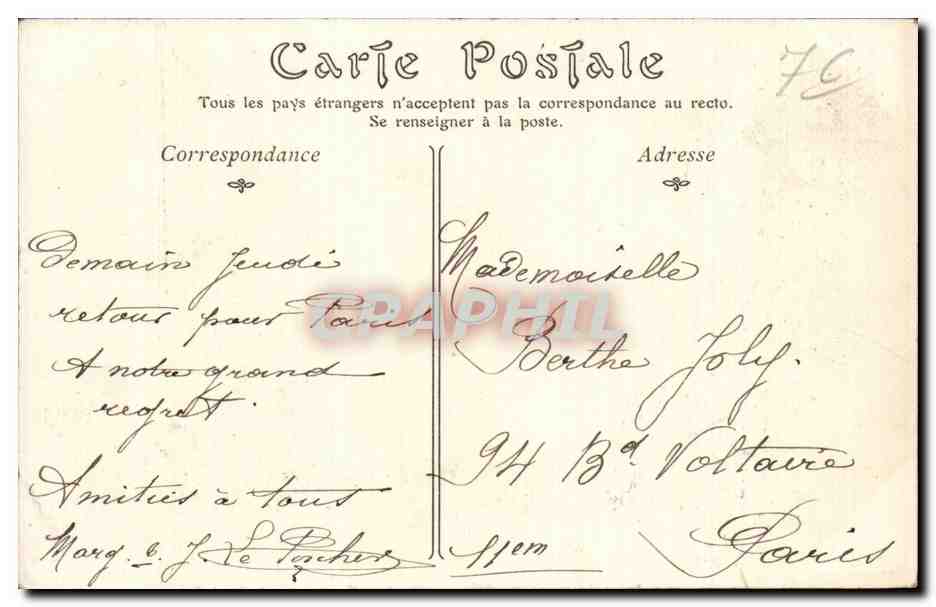 Carte Postale
76
Tous les pays étrangers n'acceptent pas la correspondance au recto.
Se renseigner à la poste.
Correspondance
Demain Jeudi
retour pour Paris
A notre grand
regret.
Amitiés à tous
Marg. & J. Le
Adresse
Mademoiselle
Berthe Joly.
94 Bd. Voltaire
11em Paris
CPAPHIL